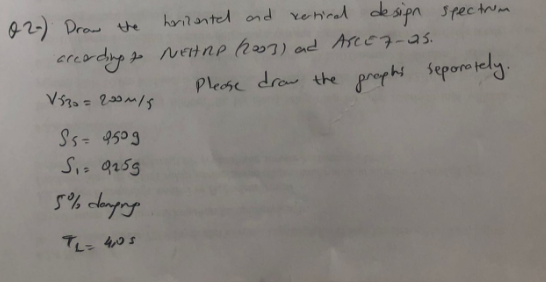 Q2-) Draw the horizontal and vertical design spectrum
according to NEHRP (2003) and ASCE 7-05.
Please draw the graphs seperately.
VS30 = 200 m/s
Ss = 0,50g
S1 = 0,25g
5% damping
TL = 4,0 s